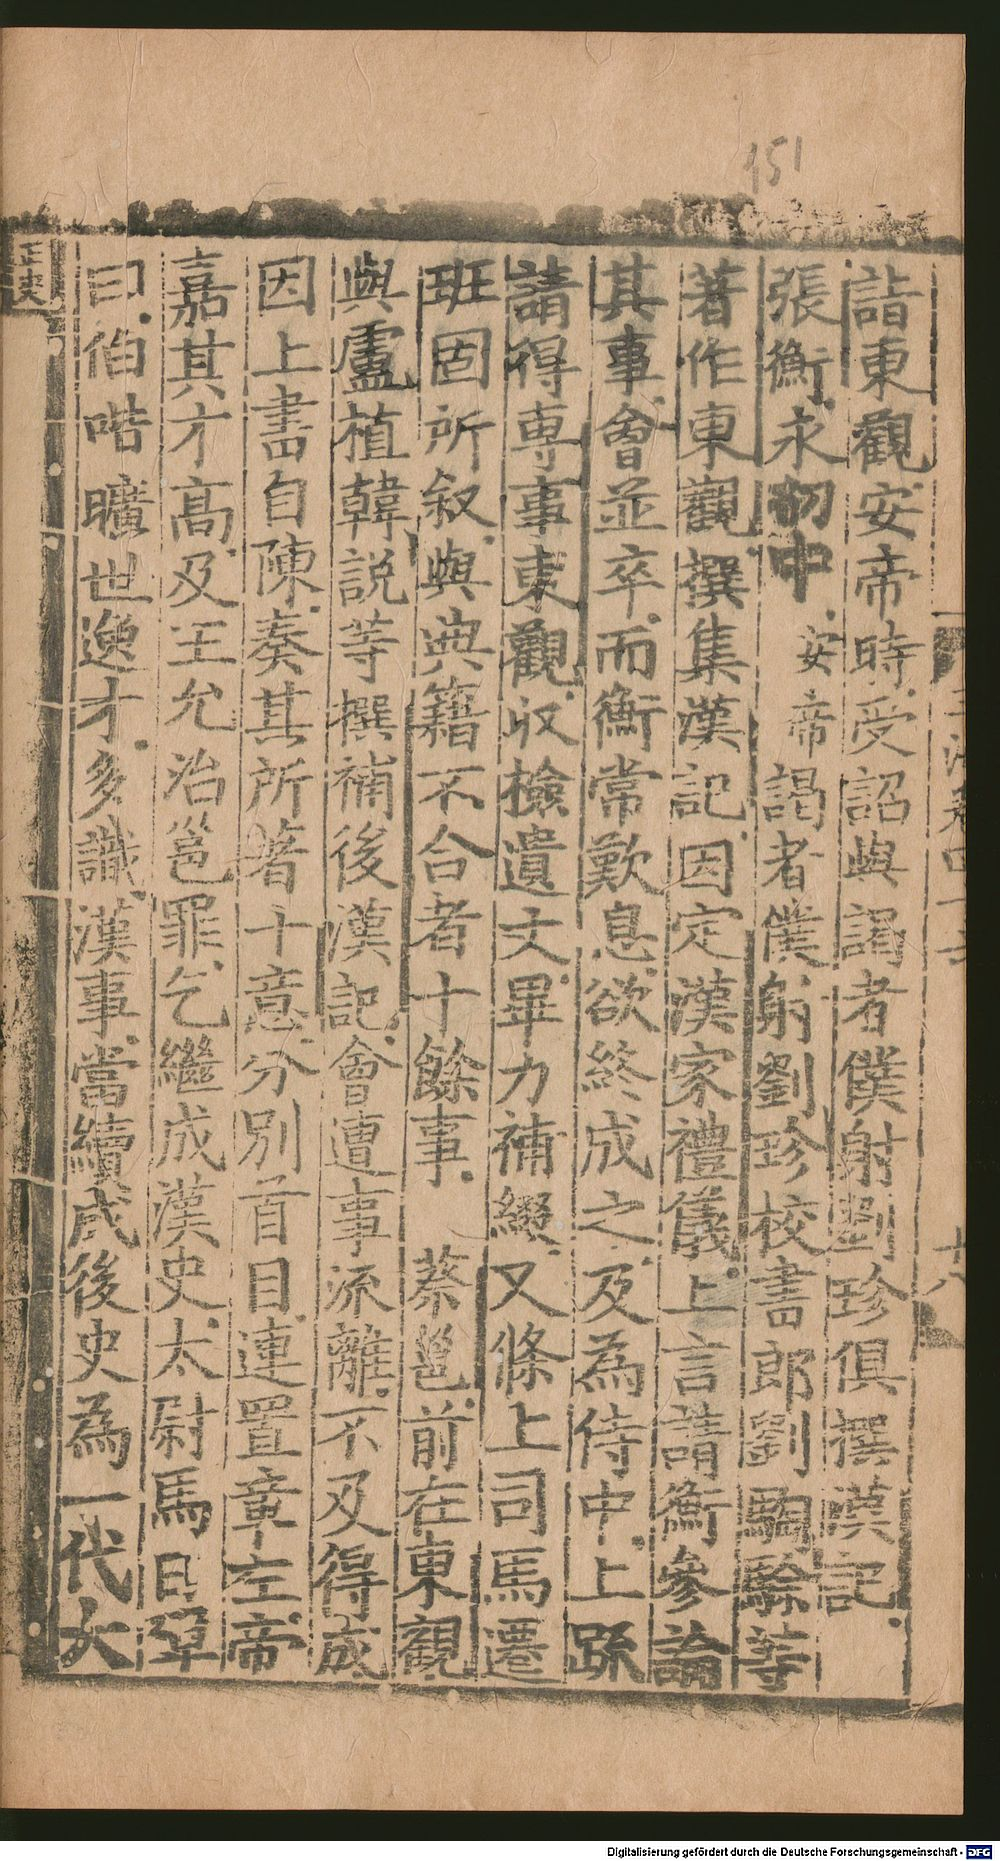 151
詣東觀安帝時受詔與謁者僕射劉珍俱撰漢記
張衡永初中安帝謁者僕射劉珍校書郎劉騊駼等
著作東觀撰集漢記因定漢家禮儀上言請衡參論
其事會並卒而衡常歎息欲終成之及為侍中上䟽
請得專事東觀收檢遺文畢力補綴又條上司馬遷
班固所叙與典籍不合者十餘事 蔡邕前在東觀
與盧植韓説等撰補後漢記會遭事流離不及得成
因上書自陳奏其所著十意分别首目連置章左帝
嘉其才高及王允治邕罪乞繼成漢史太尉馬日磾
曰伯喈曠世逸才多識漢事當續成後史為一代大
正史
Digitalisierung gefördert durch die Deutsche Forschungsgemeinschaft - DFG